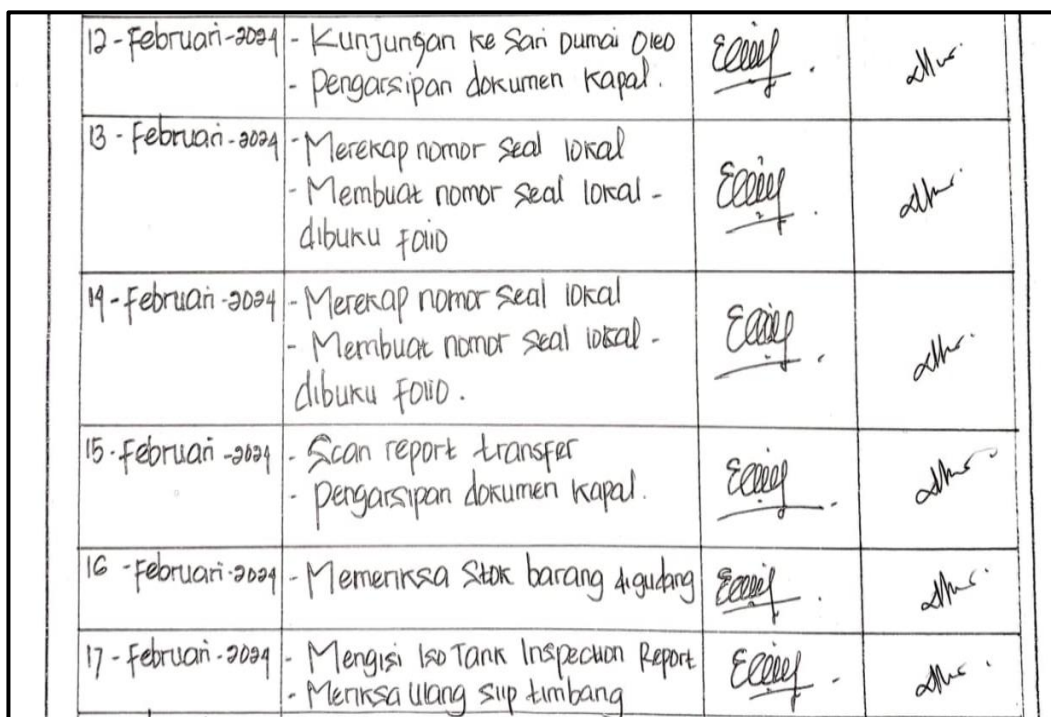 12-Februari-2024 - Kunjungan ke Sari Dumai Oleo
- Pengarsipan dokumen kapal.
13-Februari-2024 - Merekap nomor seal lokal
- Membuat nomor seal lokal -
dibuku Folio
14-Februari-2024 - Merekap nomor seal lokal
- Membuat nomor seal lokal -
dibuku Folio.
15-Februari-2024 - Scan report transfer
- Pengarsipan dokumen kapal.
16-Februari-2024 - Memeriksa Stok barang digudang
17-Februari-2024 - Mengisi Iso Tank Inspection Report
- Meriksa ulang slip timbang